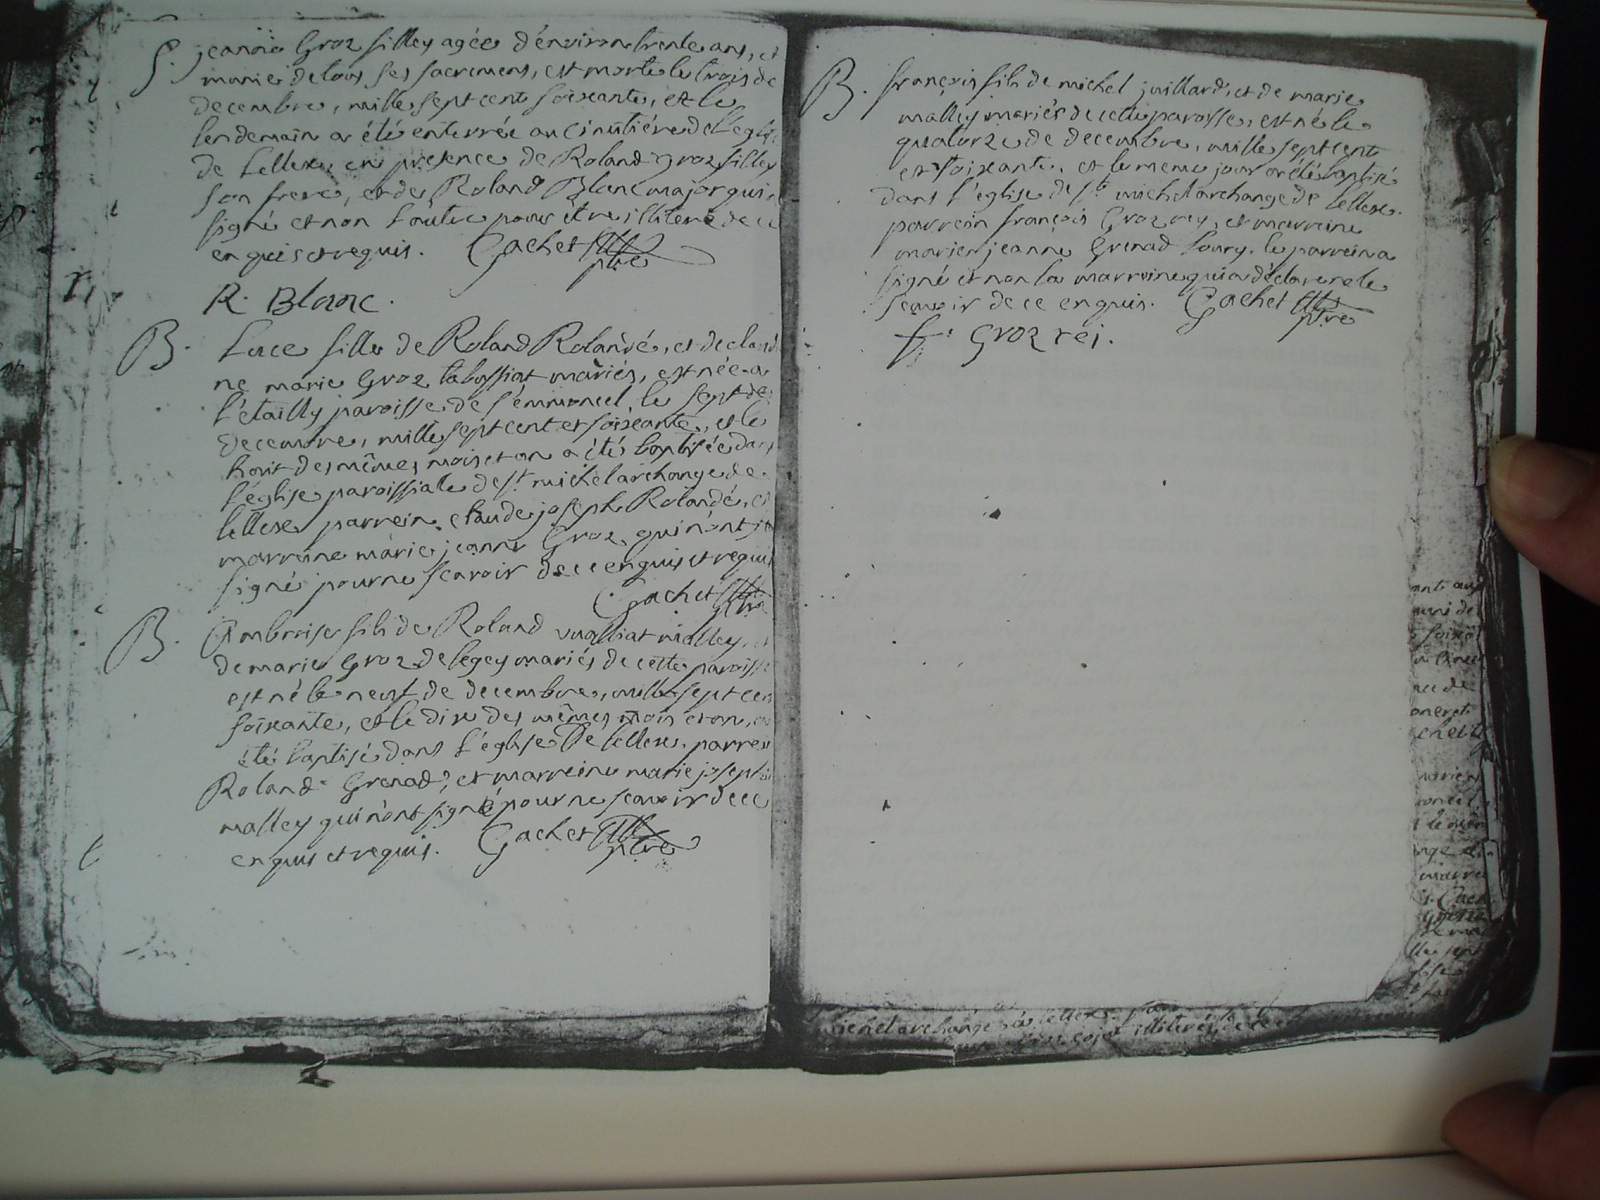 S. jeanne Groz filley agée d'énviron trente ans, et
munie de tous ses sacremens, est morte le trois de
decembre, mille sept cent soixante, et le
lendemain a été enterrée au cimitiére de l'eglise
de Lellex, en presence de Roland Groz filley
son frere, et de Roland Blanc major qui a
signé et non l'autre pour étre illiteré de ce
enquis et requis. Gachet ptre
R. Blanc.
B. Luce fille de Roland Rolandé, et de claudi
ne marie Groz tabossiat mariés, est née a
l'étailly paroisse de septmoncel, le sept de
decembre, mille sept cent et soixante, et le
huit des mêmes mois et an a été baptisée dans
l'église paroissiale de st michel archange de
lellex parrein claude joseph Rolandé, et
marraine marie jeanne Groz, qui n'ont
signé pour ne scavoir de ce enquis et requis
Gachet ptre
B. Ambroise fils de Roland vualliat malley, et
de marie Groz delegey mariés de cette paroisse
est né le neuf de decembre, mille sept cent
soixante, et le dix des mêmes mois et an, a
été baptisé dans l'église de lellex. parrein
Roland Grenad, et marreine marie josephe
malley qui n'ont signé pour ne scavoir de ce
enquis et requis. Gachet ptre
B. françois fils de michel juillard, et de marie
malley mariés de cette paroisse, est né le
quatorze de decembre, mille sept cent
et soixante, et le meme jour a été baptisé
dans l'église de st michel archange de lellex.
parrein françois Groz rey, et marreine
marie jeanne Grenad loury. le parrein a
signé et non la marreine qui a déclaré ne le
scavoir de ce enquis. Gachet ptre
f. Groz rei.
michel archange de lellex